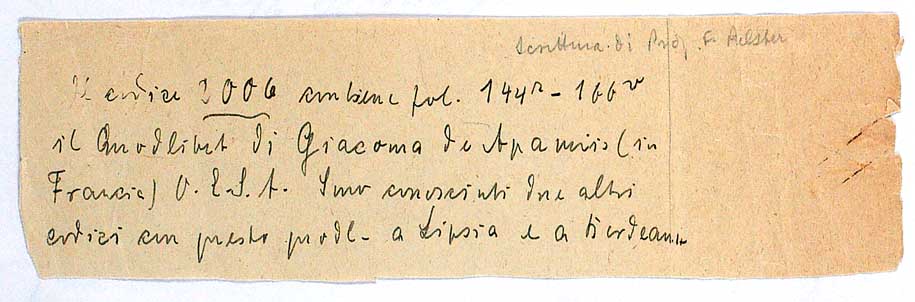 Scrittura di Prof. F. Pelster
Il codice 2006 contiene fol. 144r - 166v
il Quodlibet di Giacoma de Apamiis (in
Francia) O. E. S. A. Sono conosciuti due altri
codici con questo quodl. a Lipsia e a Bordeaux